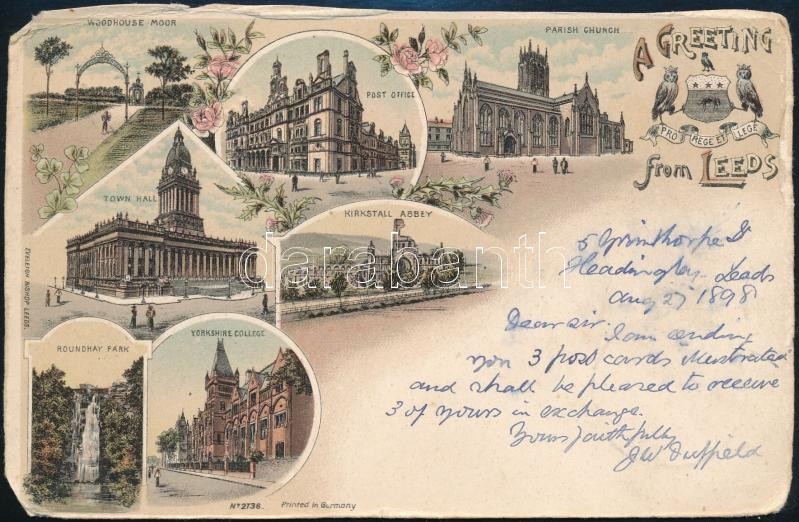 WOODHOUSE MOOR
POST OFFICE
PARISH CHURCH
A GREETING
PRO REGE ET LEGE
from LEEDS
TOWN HALL
KIRKSTALL ABBEY
EVELEIGH BISHOP LEEDS.
ROUNDHAY PARK
YORKSHIRE COLLEGE
Nº 2736. Printed in Germany
darabanth
5 Grimthorpe St
Headingley Leeds
Aug 27 1898
Dear sir I am sending
you 3 post cards illustrated
and shall be pleased to receive
3 of yours in exchange.
Yours faithfully
JW Duffield